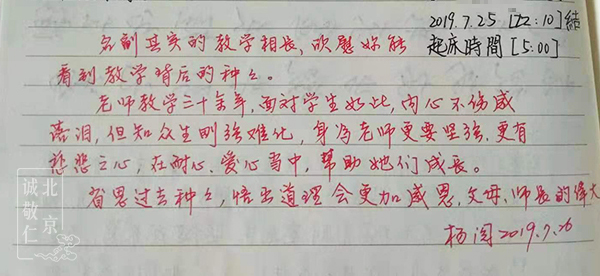 2019.7.25 [22:10]結
起床時間[5:00]
名副其实的教学相长,欣慰妳能
看到教学背后的种种。
老师教学三十余年,面对学生如此,内心不伤感
落泪,但知众生刚强难化,身为老师更要坚强,更有
慈悲之心,在耐心、爱心当中,帮助她们成长。
省思过去种种,悟出道理会更加感恩,父母、师长的偉大
杨阅2019.7.26
北京
诚敬仁